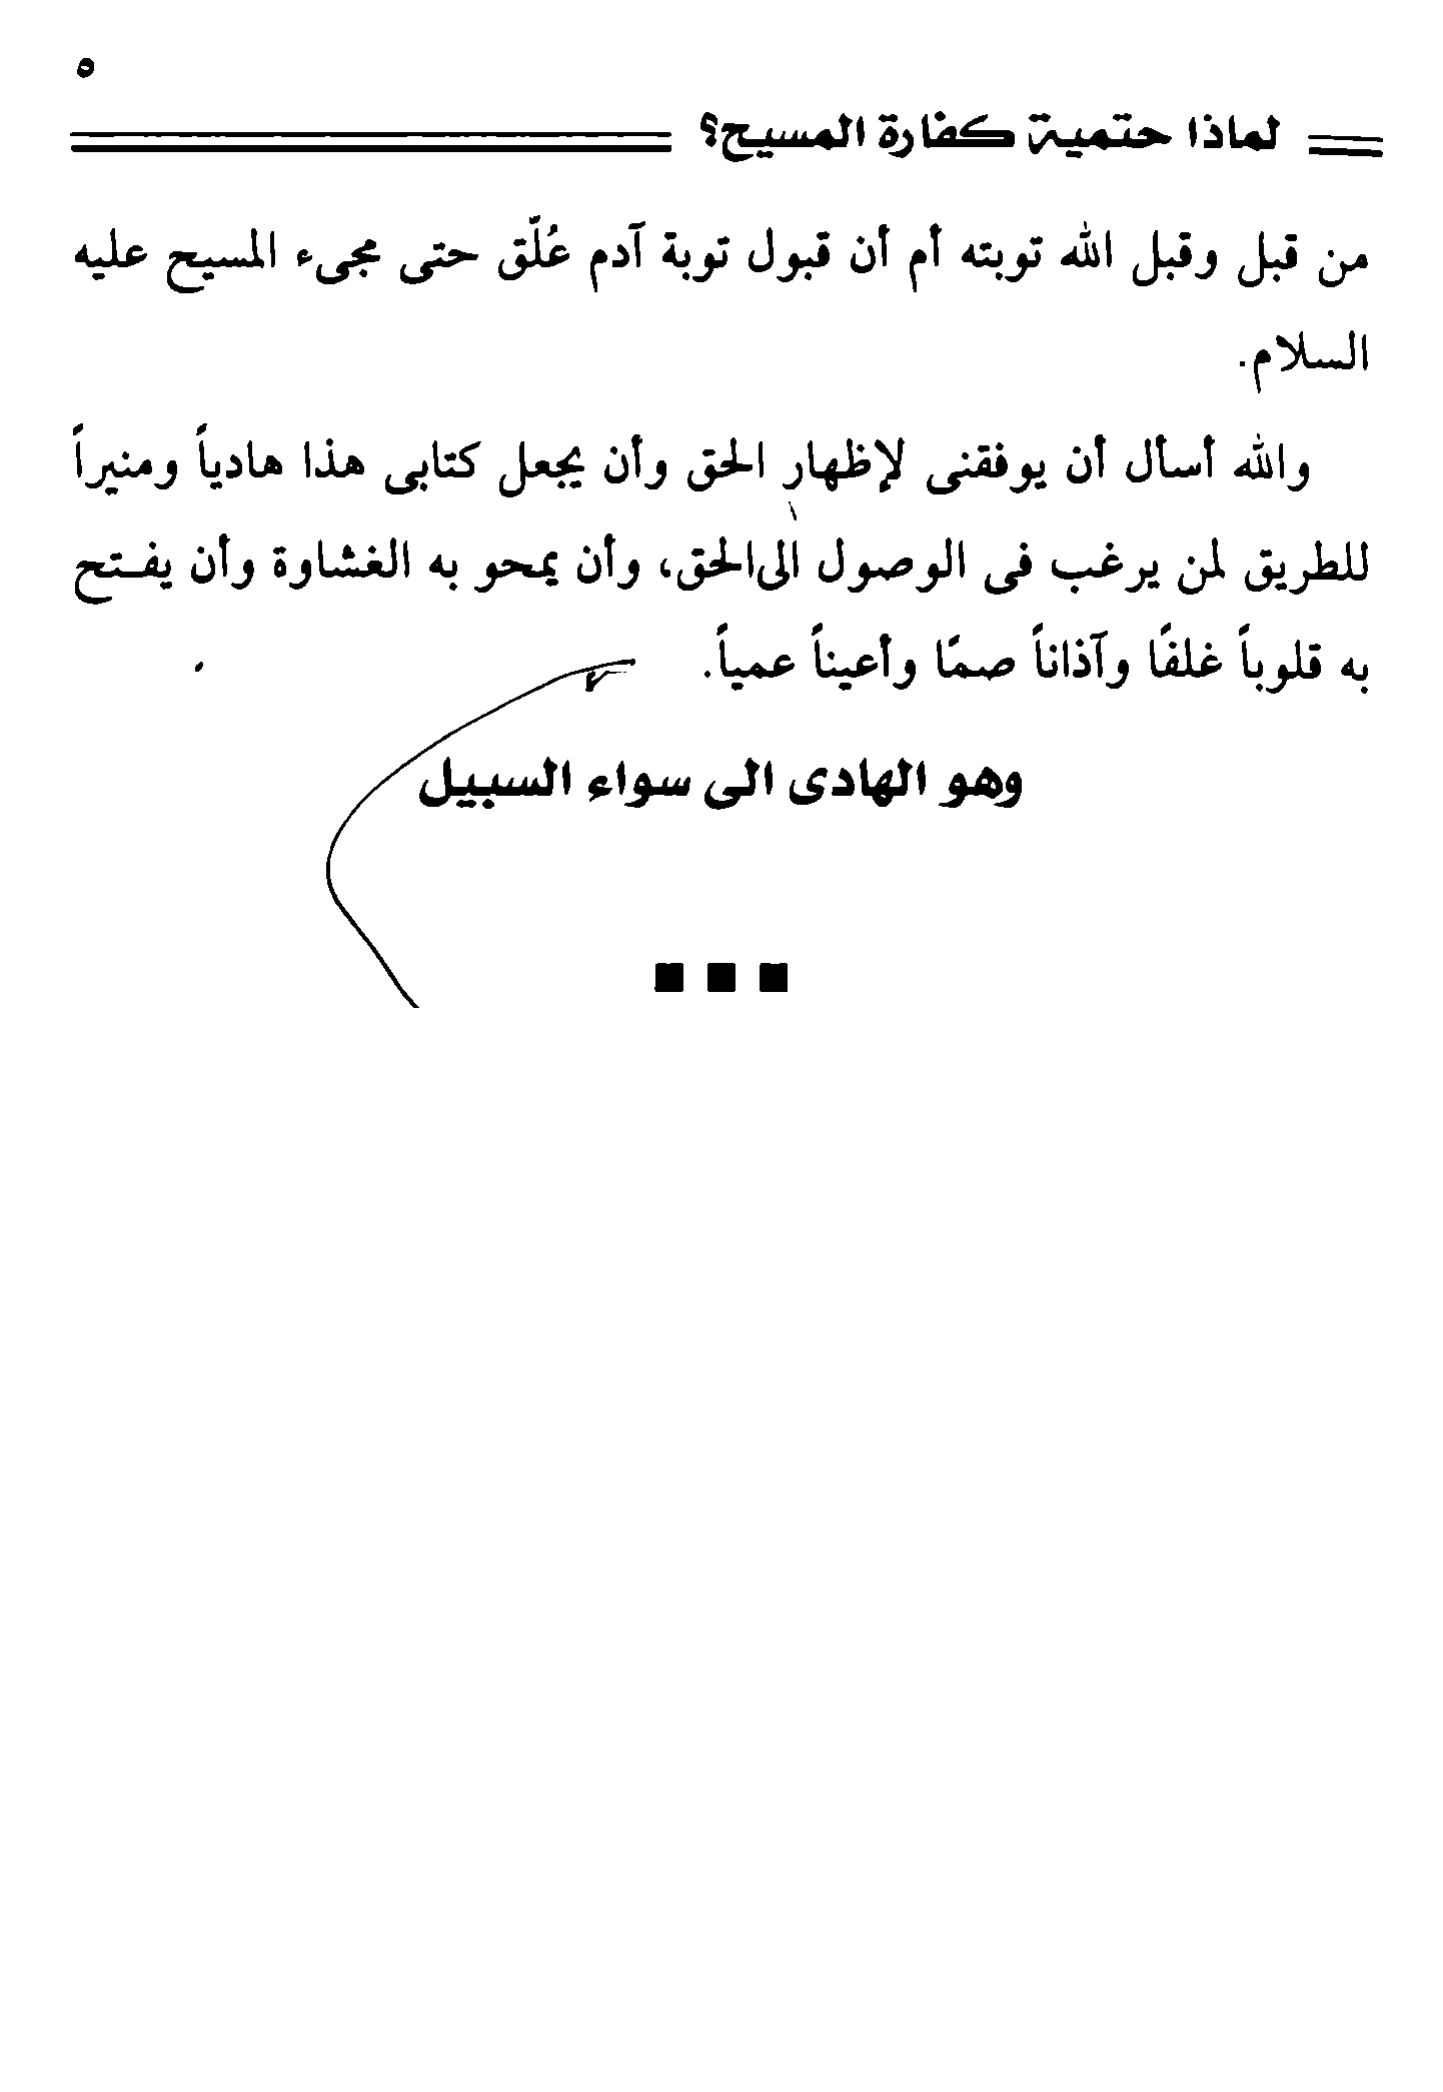 ٥
لماذا حتمية كفارة المسيح؟
من قبل وقبل الله توبته أم أن قبول توبة آدم عُلّق حتى مجىء المسيح عليه
السلام.
والله أسأل أن يوفقنى لإظهار الحق وأن يجعل كتابى هذا هادياً ومنيراً
للطريق لمن يرغب فى الوصول الى الحق، وأن يمحو به الغشاوة وأن يفـتح
به قلوباً غلفًا وآذاناً صمًا وأعيناً عمياً.
وهو الهادى الى سواء السبيل